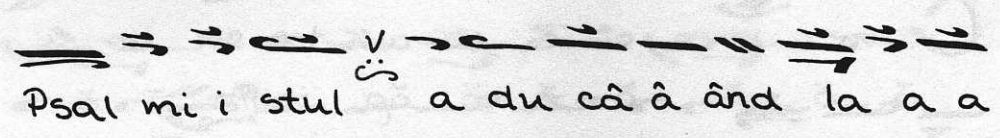 Psal mi i stul a du câ â ând la a a